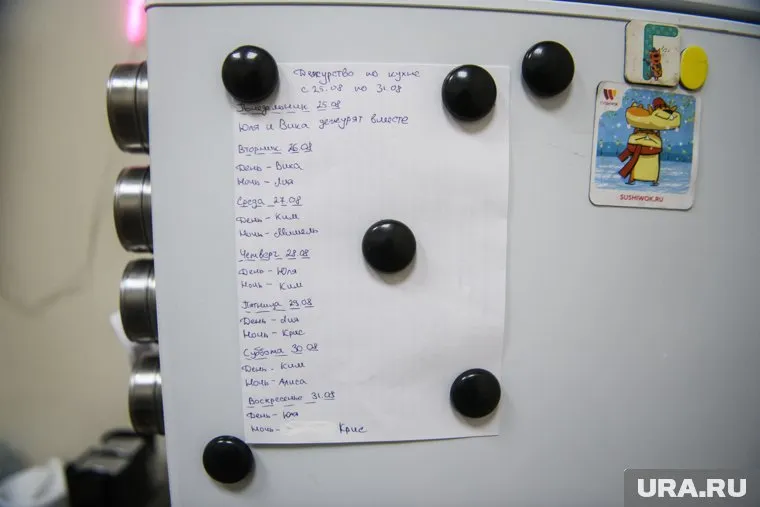 Дежурство по кухне
с 25.08 по 31.08
Понедельник 25.08
Юля и Вика дежурят вместе
Вторник 26.08
День - Вика
Ночь - Лия
Среда 27.08
День - Ким
Ночь - Мишель
Четверг 28.08
День - Юля
Ночь - Ким
Пятница 29.08
День - Лия
Ночь - Крис
Суббота 30.08
День - Ким
Ночь - Алиса
Воскресенье 31.08
День - Юля
Ночь - Крис
SUSHIWOK.RU
URA.RU